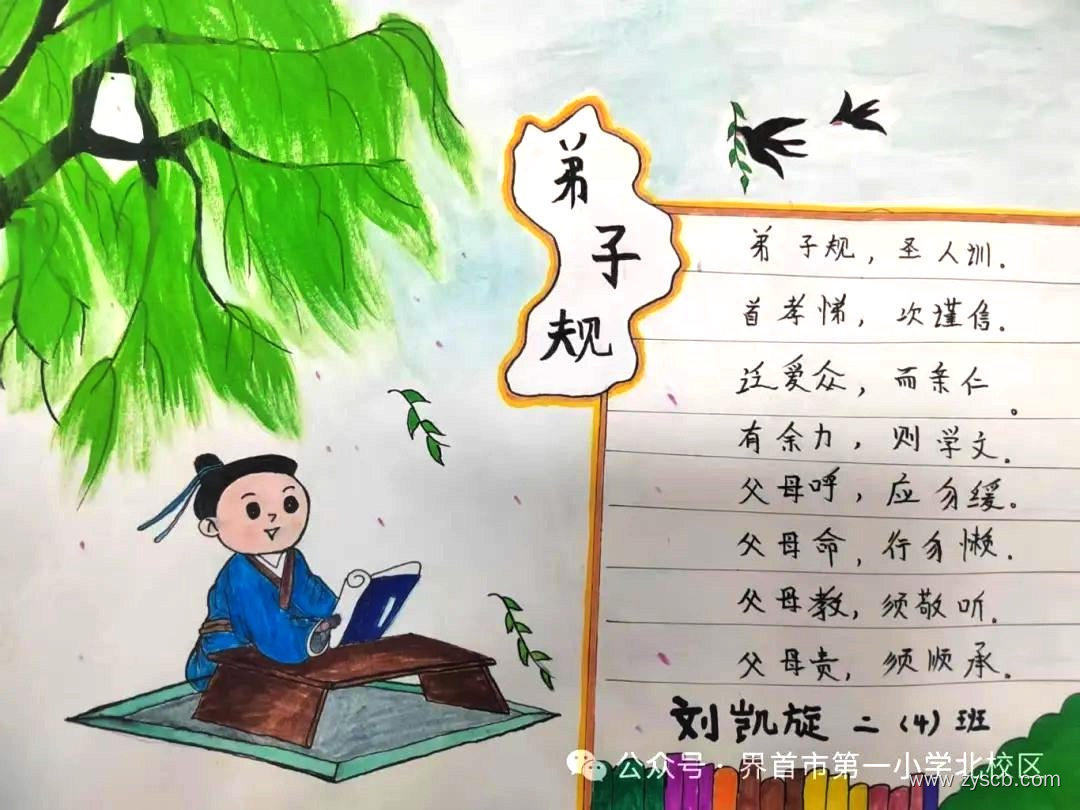 弟子规
弟子规，圣人训.
首孝悌，次谨信.
泛爱众，而亲仁。
有余力，则学文.
父母呼，应勿缓。
父母命，行勿懒.
父母教，须敬听.
父母贵，须顺承.
刘凯旋 二（4）班
公众号·界首市第一小学北校区
www.zyscb.com